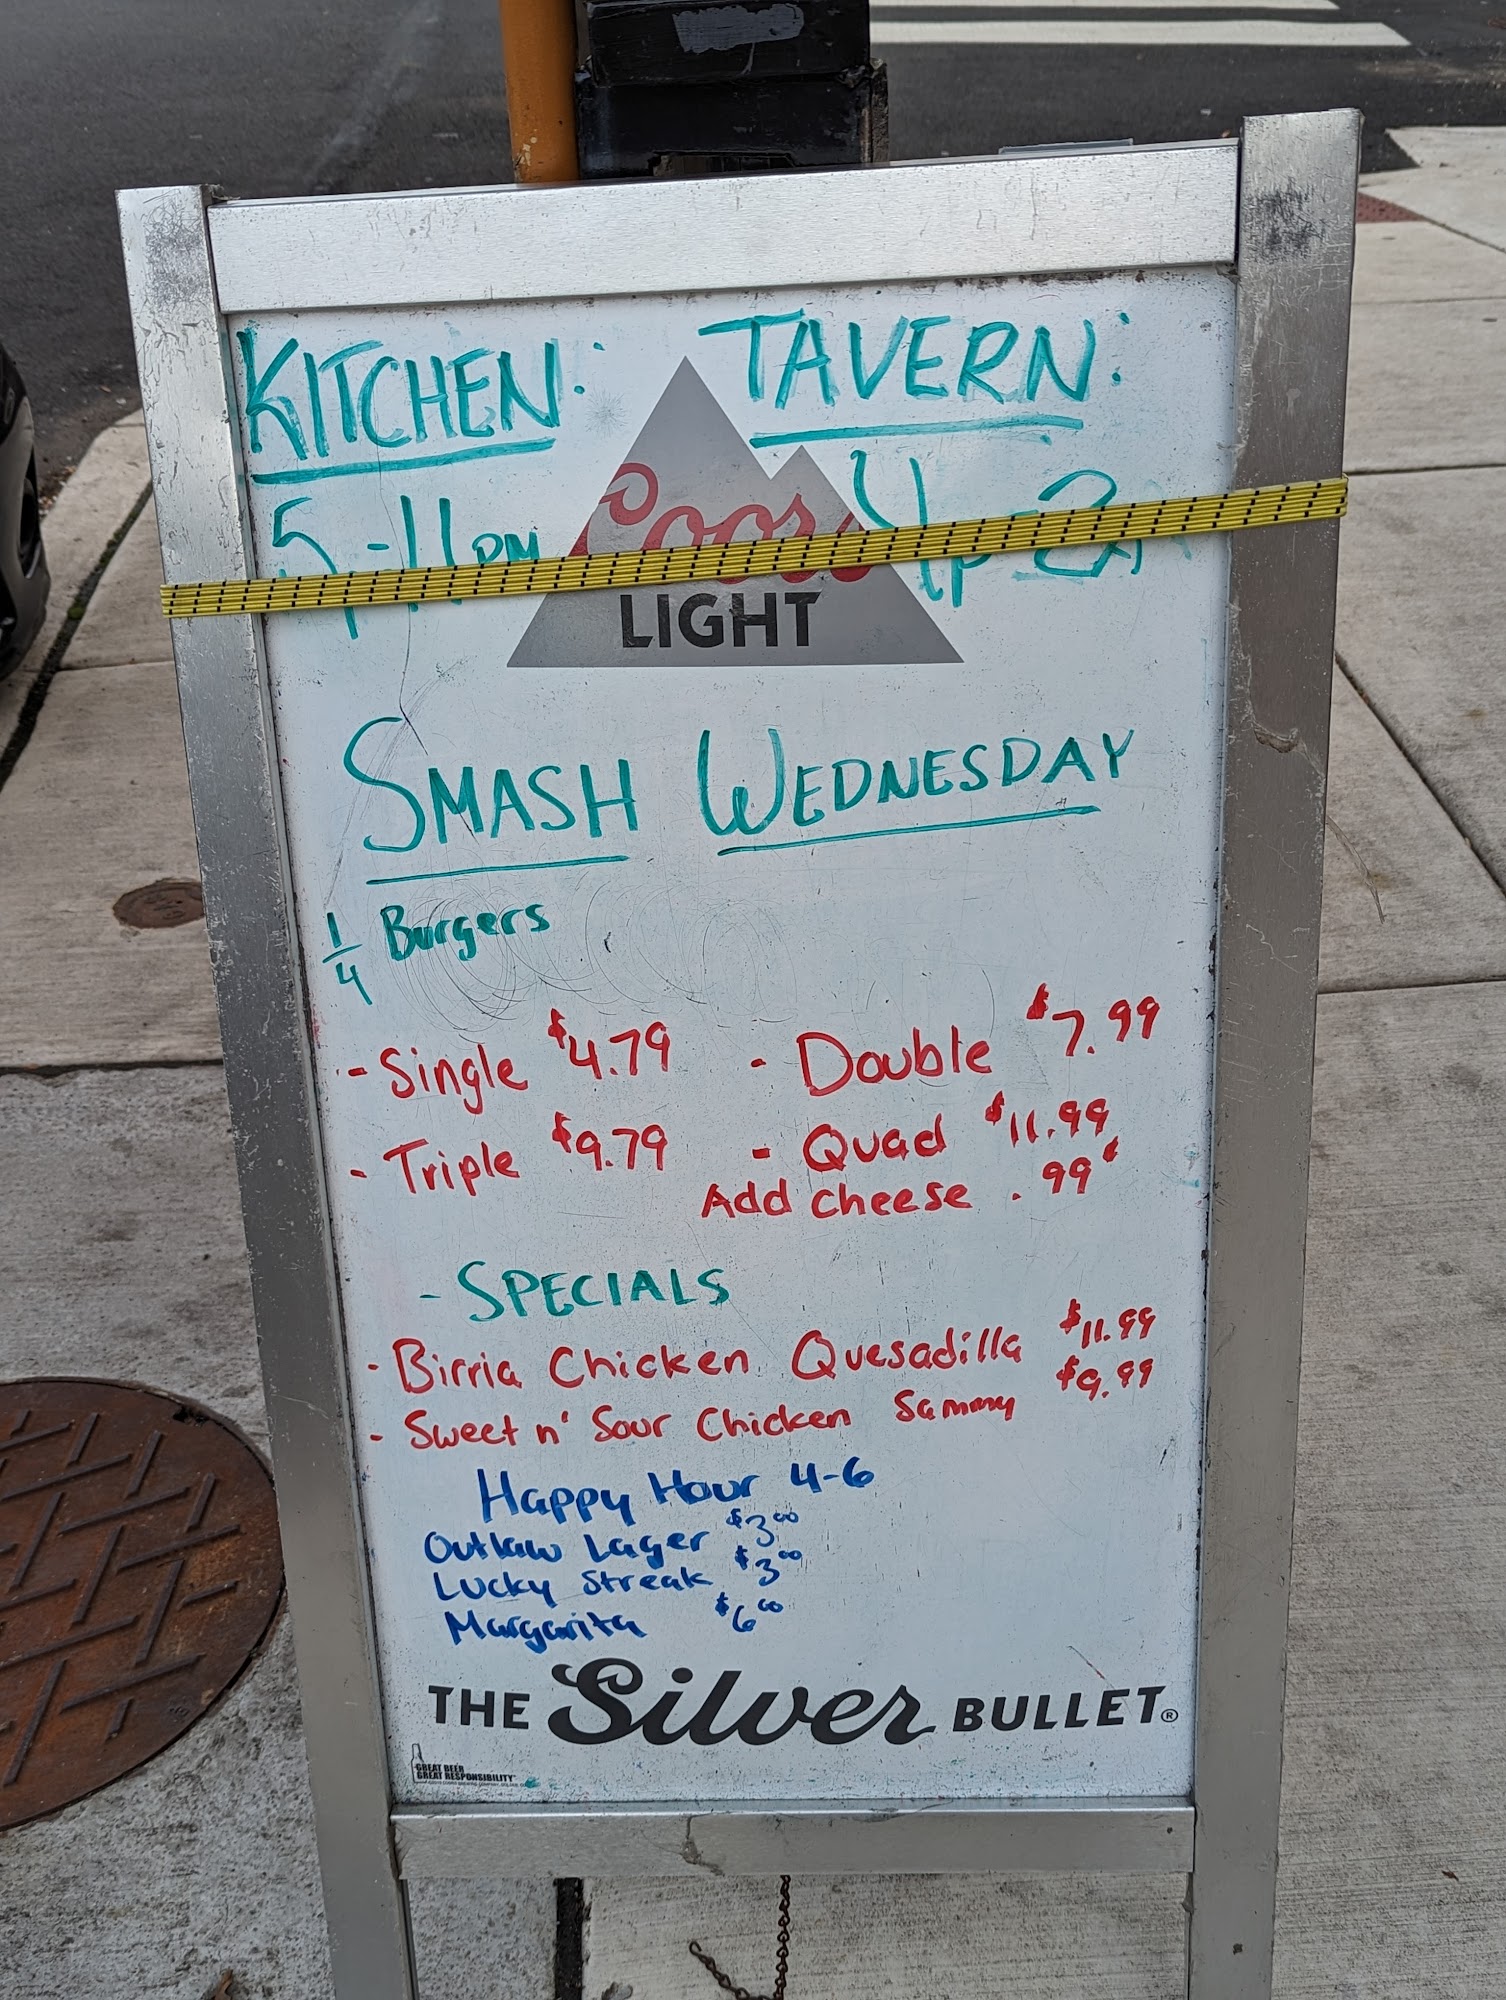 KITCHEN: TAVERN:
5p-11pm 4p-2a
Coors
LIGHT
SMASH WEDNESDAY
1/4 Burgers
- Single $4.79 - Double $7.99
- Triple $9.79 - Quad $11.99
Add cheese .99¢
- SPECIALS
- Birria Chicken Quesadilla $11.99
- Sweet n' Sour Chicken Sammy $9.99
Happy Hour 4-6
Outlaw Lager $3.00
Lucky Streak $3.00
Margarita $6.00
THE Silver BULLET®
GREAT BEER
GREAT RESPONSIBILITY